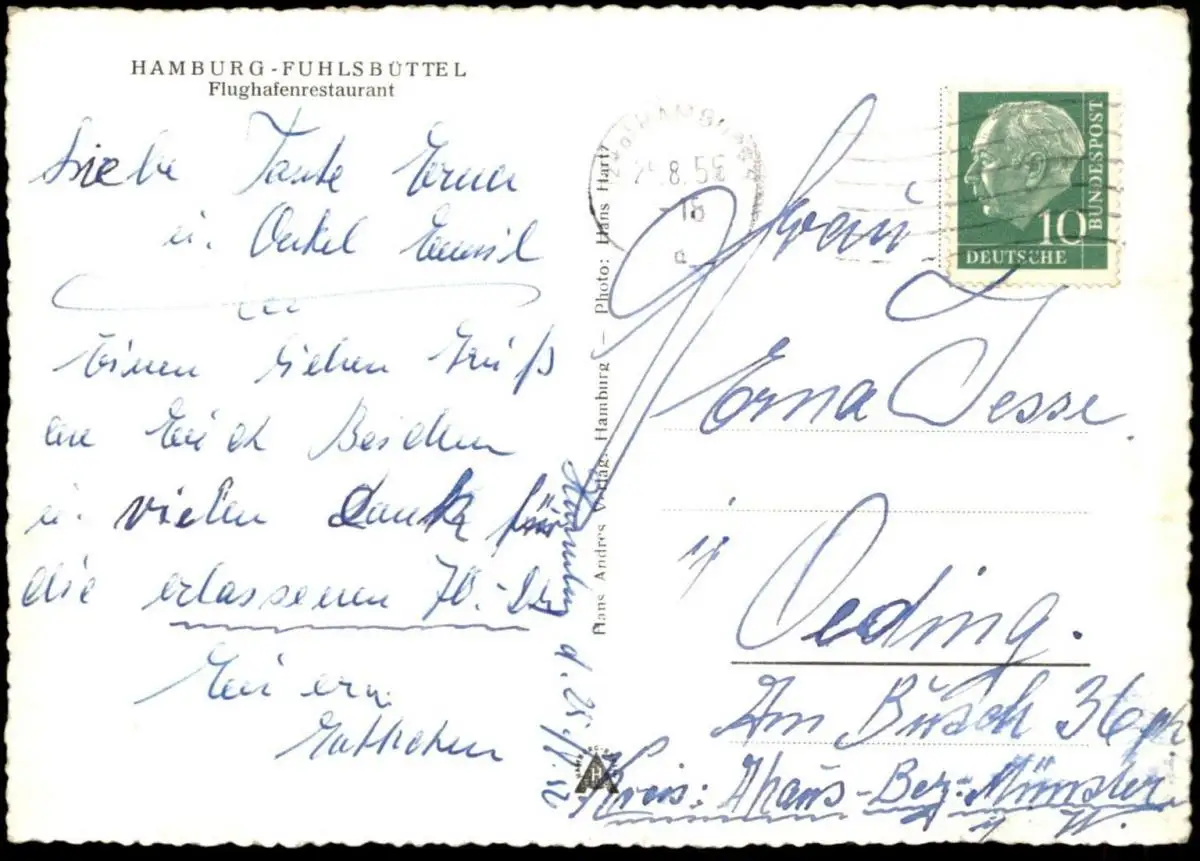 HAMBURG-FUHLSBÜTTEL
Flughafenrestaurant
Liebe Tante Erna
u. Onkel Emil
Einen lieben Gruß
an Euch Beiden
u. vielen Dank für
die erlassenen 70.-
Euer
Hamburg d. 25./8.
Hans Andres Verlag. Hamburg — Photo: Hans Hartz
HAMBURG
25.8.56
-18
a
10
DEUTSCHE
BUNDESPOST
Frau
Erna Jesse
Oeding.
Am Busch 36
Kreis: Ahaus-Bez-Münster
W.